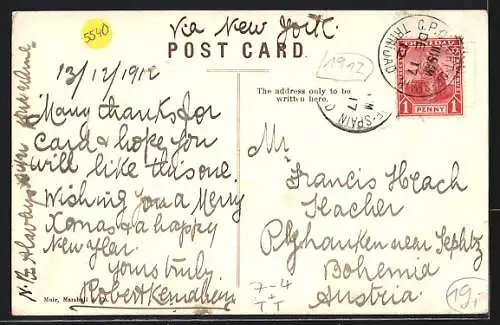 5540
Via New York.
POST CARD.
1912
13/12/1912
The address only to be
written here.
TRINIDAD
G.P.O.
TRINIDAD
1 PENNY 1
Many thanks for
card & hope you
will like this one.
Wishing you a Merry
Xmas & a happy
New Year.
Yours truly,
Mr
Francis Heach
Teacher
near Teplitz
Bohemia
Austria.
N.B. Always
Muir, Marshall
7-4
TT
19,-